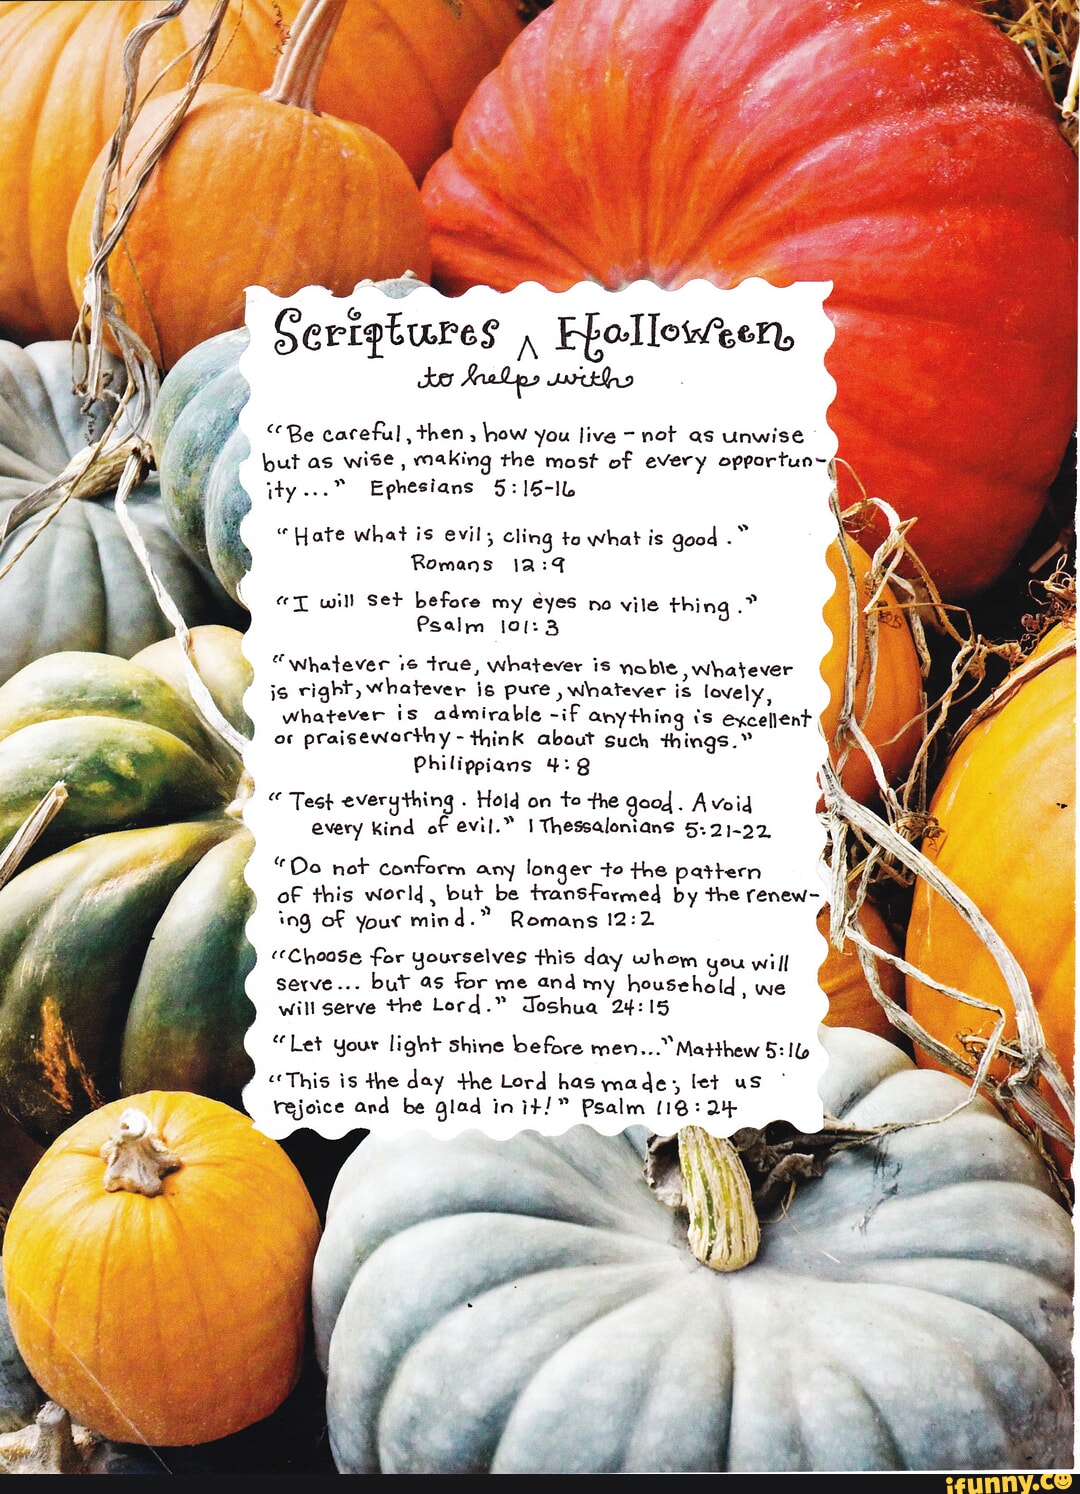 Scriptures ^ Halloween
to help with
"Be careful, then, how you live - not as unwise
but as wise, making the most of every opportun-
ity..." Ephesians 5:15-16
"Hate what is evil; cling to what is good."
Romans 12:9
"I will set before my eyes no vile thing."
Psalm 101:3
"Whatever is true, whatever is noble, whatever
is right, whatever is pure, whatever is lovely,
whatever is admirable - if anything is excellent
or praiseworthy - think about such things."
Philippians 4:8
"Test everything. Hold on to the good. Avoid
every kind of evil." 1 Thessalonians 5:21-22
"Do not conform any longer to the pattern
of this world, but be transformed by the renew-
ing of your mind." Romans 12:2
"Choose for yourselves this day whom you will
serve... but as for me and my household, we
will serve the Lord." Joshua 24:15
"Let your light shine before men..." Matthew 5:16
"This is the day the Lord has made; let us
rejoice and be glad in it!" Psalm 118:24
ifunny.co